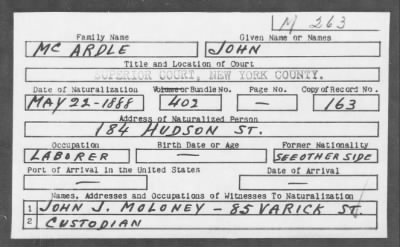 M 263
Family Name Given Name or Names
MC ARDLE JOHN
Title and Location of Court
SUPERIOR COURT, NEW YORK COUNTY.
Date of Naturalization Volume or Bundle No. Page No. Copy of Record No.
MAY 22-1888 402 — 163
Address of Naturalized Person
184 HUDSON ST.
Occupation Birth Date or Age Former Nationality
LABORER — SEE OTHER SIDE
Port of Arrival in the United States Date of Arrival
— —
Names, Addresses and Occupations of Witnesses To Naturalization
1 JOHN J. MOLONEY - 85 VARICK ST.
2 CUSTODIAN